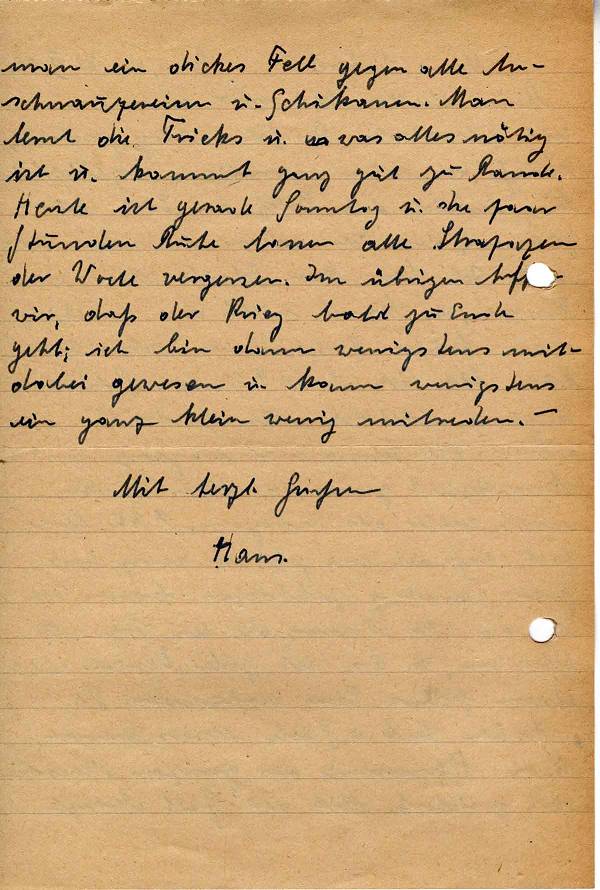 man ein dickes Fell gegen alle An-
schnauzereien u. Schikanen. Man
lernt die Tricks u. was alles nötig
ist u. kommt ganz gut zu Rande.
Heute ist gerade Sonntag u. die paar
Stunden Ruhe lassen alle Strapazen
der Woche vergessen. Im übrigen hoffen
wir, daß der Krieg bald zu Ende
geht; ich bin dann wenigstens mit
dabei gewesen u. kann wenigstens
ein ganz klein wenig mitreden. —
Mit herzl. Grüßen
Hans.